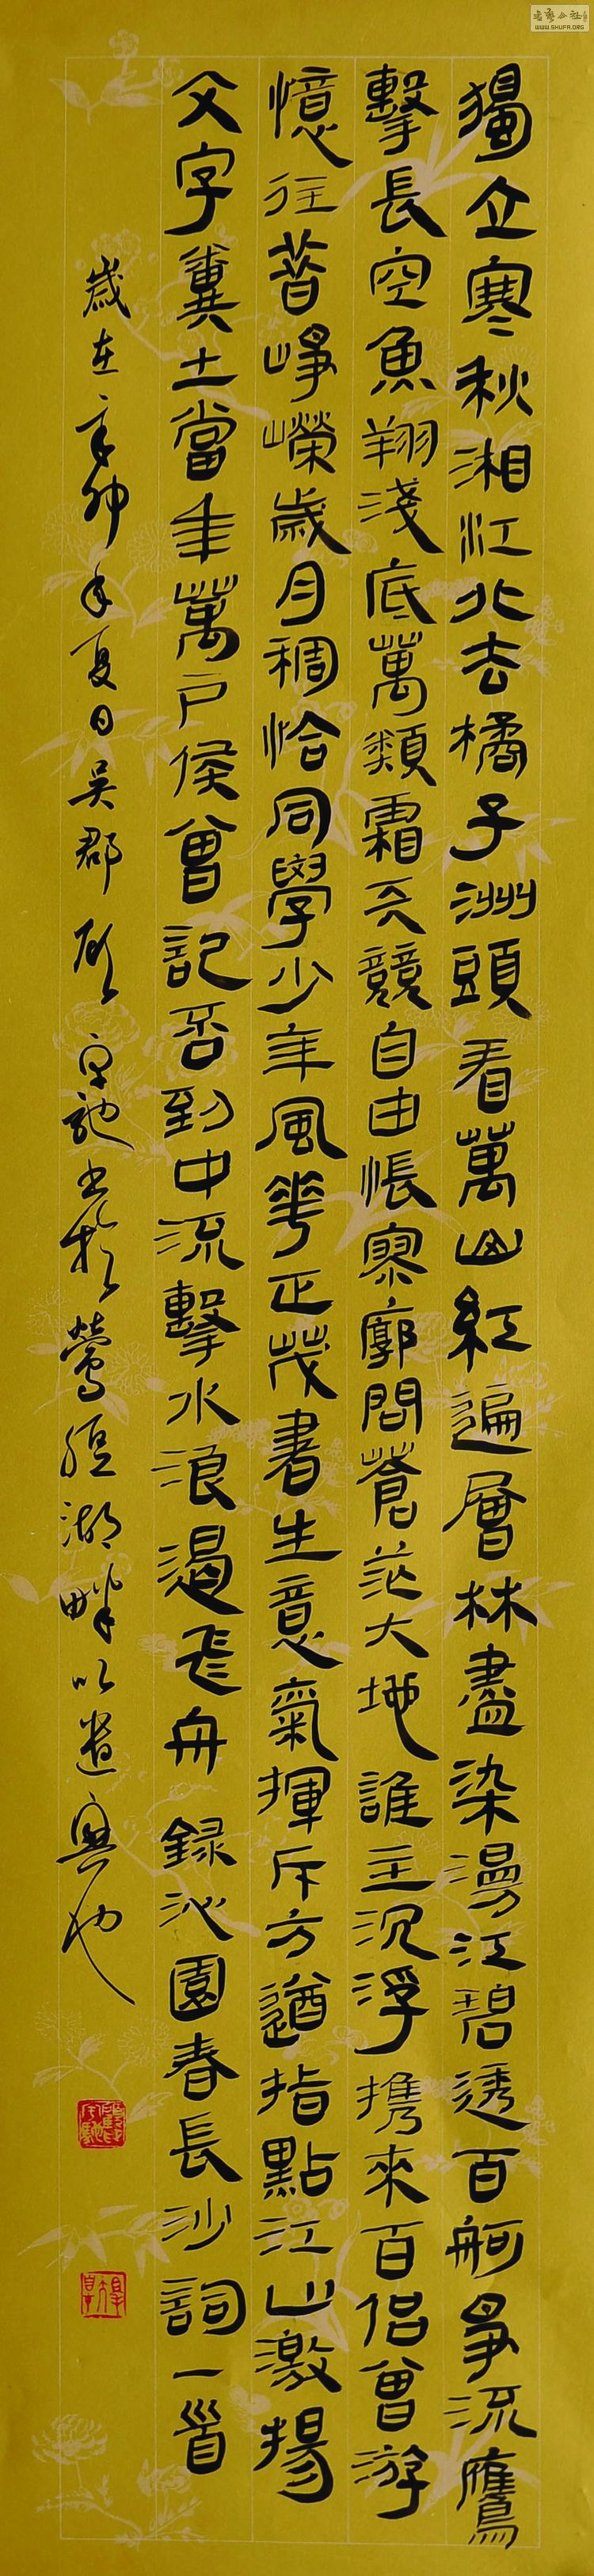 書藝公社
WWW.SHUFA.ORG
獨立寒秋湘江北去橘子洲頭看萬山紅遍層林盡染漫江碧透百舸爭流鷹
擊長空魚翔淺底萬類霜天競自由悵寥廓問蒼茫大地誰主沉浮携來百侶曾游
憶往昔崢嶸歲月稠恰同學少年風華正茂書生意氣揮斥方遒指點江山激揚
文字糞土當年萬戶侯曾記否到中流擊水浪遏飛舟 錄沁園春長沙詞一首
歲在辛卯年夏日吳郡 書於鶯脰湖畔以遣興也